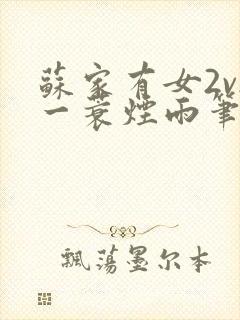 蘇家有女2v
一蓑煙雨筆
飄蕩墨尔本